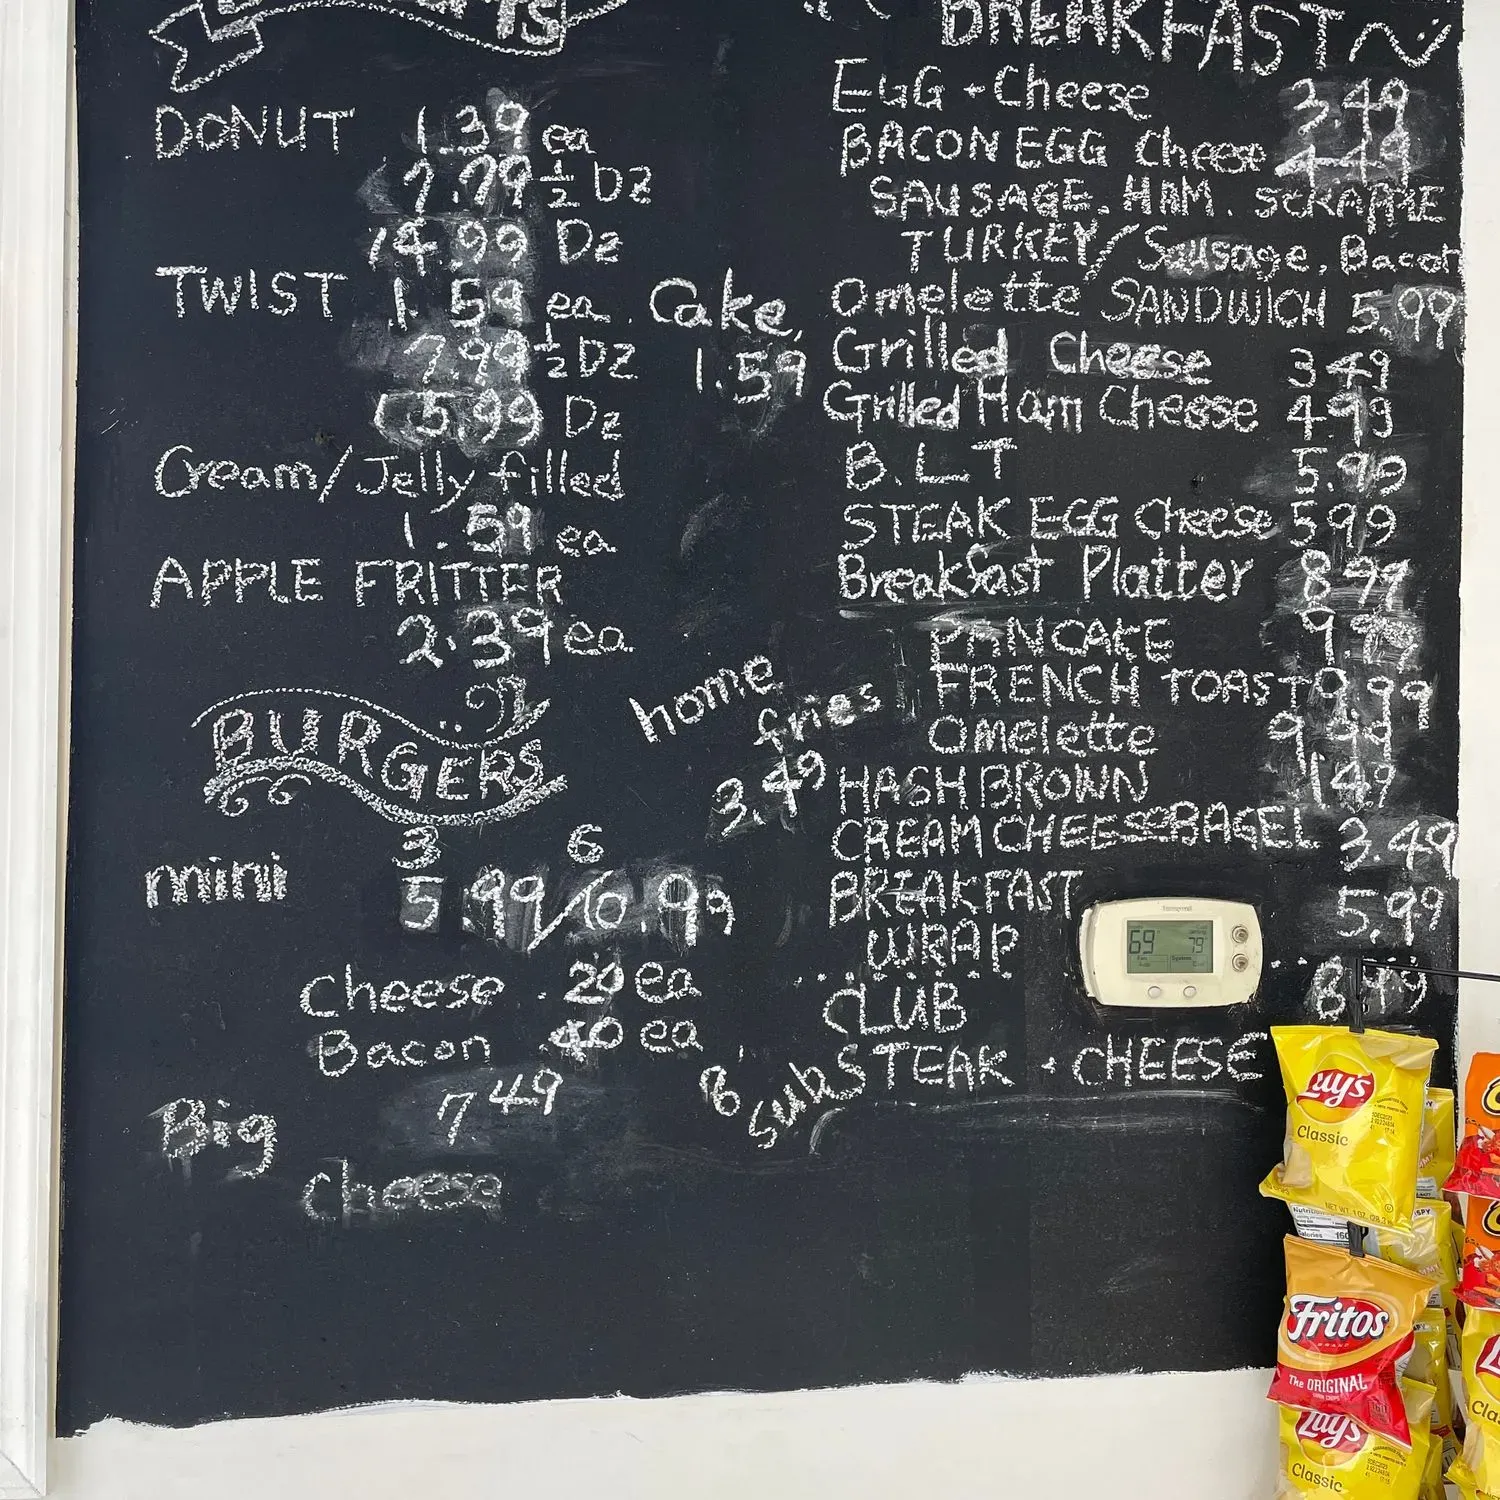 DONUT 1.39 ea
7.79 ½ DZ
14.99 Dz
TWIST 1.59 ea
7.99 ½ DZ
15.99 Dz
Cake
1.59
Cream/Jelly filled
1.59 ea
APPLE FRITTER
2.39 ea
BURGERS
3 6
mini 5.99/10.99
Cheese .20 ea
Bacon .40 ea
Big 7.49
Cheese
home
fries
3.49
BREAKFAST
EGG + Cheese 3.49
BACON EGG Cheese 4.49
SAUSAGE. HAM. SCRAPPLE
TURKEY/Sausage, Bacon
Omelette SANDWICH 5.99
Grilled Cheese 3.49
Grilled Ham Cheese 4.99
B.L.T 5.99
STEAK EGG Cheese 5.99
Breakfast Platter 8.99
PANCAKE 9.79
FRENCH TOAST 9.99
Omelette 9.99
HASH BROWN 1.49
CREAM CHEESE BAGEL 3.49
BREAKFAST 5.99
WRAP
CLUB 8.49
8" Subs STEAK + CHEESE
69 79
Lay's
Classic
NET WT. 1 OZ.
Fritos
The ORIGINAL
Lay's
Classic